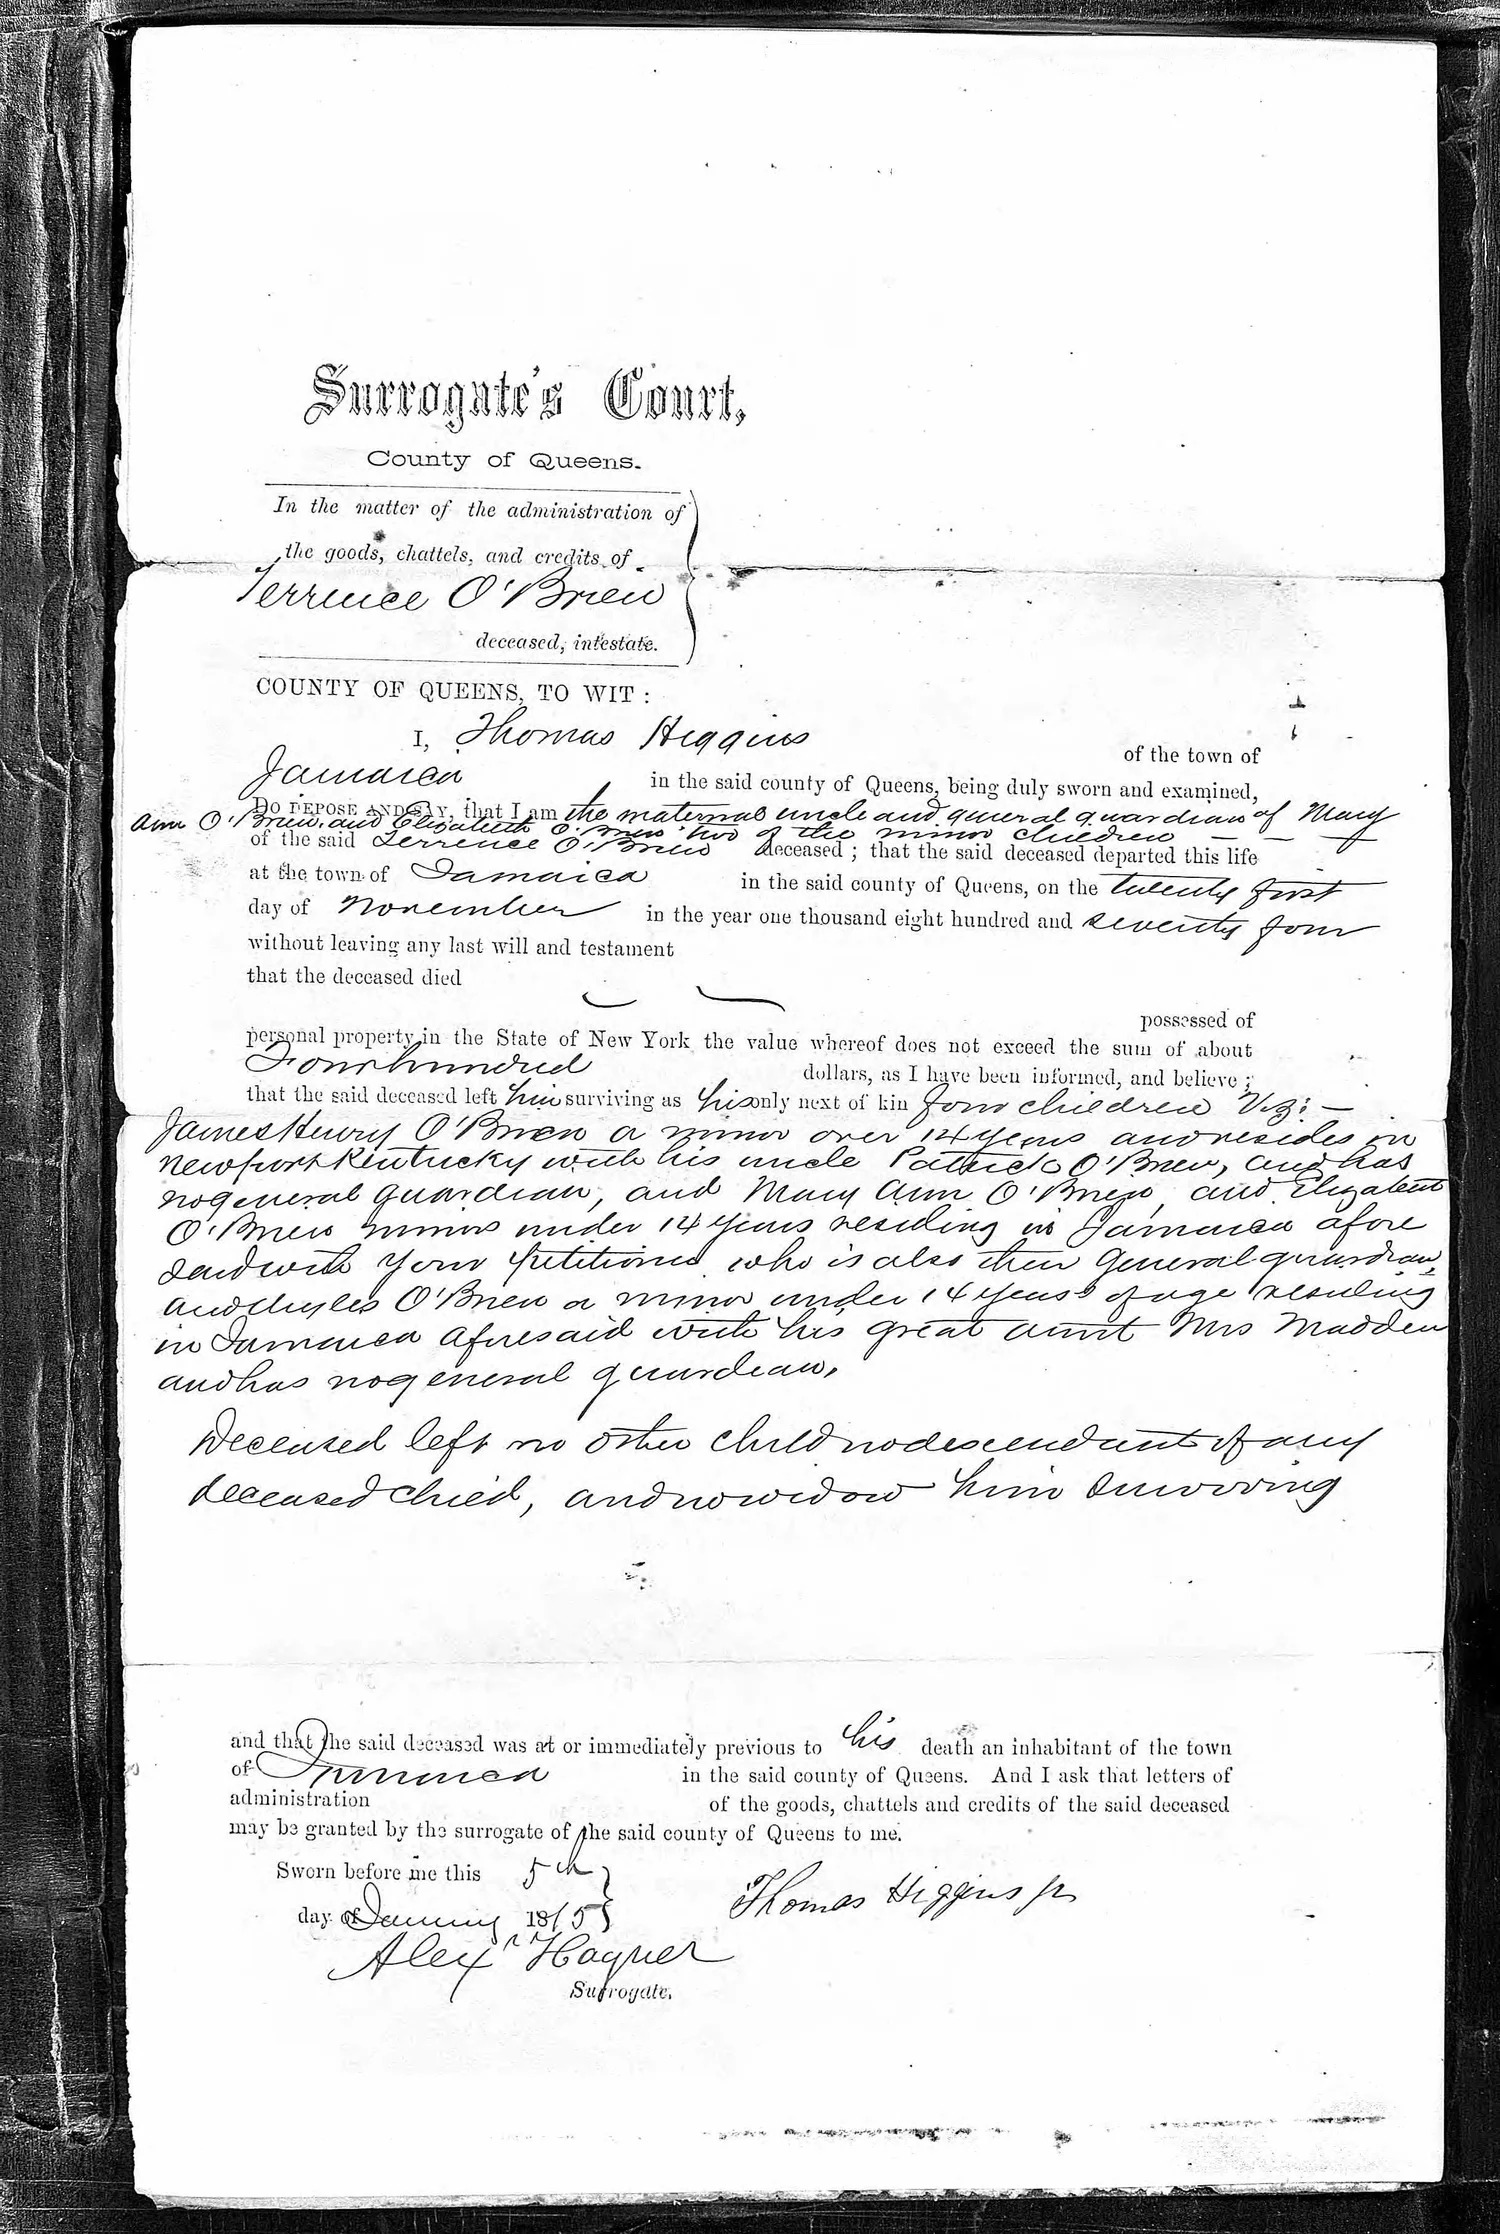 Surrogate's Court,
County of Queens.
In the matter of the administration of
the goods, chattels, and credits of
Terrence O'Brien
deceased, intestate.
COUNTY OF QUEENS, TO WIT :
I, Thomas Higgins of the town of
Jamaica in the said county of Queens, being duly sworn and examined,
DO DEPOSE AND SAY, that I am the maternal uncle and general guardian of Mary
Ann O'Brien and Elizabeth O'Brien two of the minor children
of the said Terrence O'Brien deceased ; that the said deceased departed this life
at the town of Jamaica in the said county of Queens, on the twenty first
day of November in the year one thousand eight hundred and seventy four
without leaving any last will and testament
that the deceased died
possessed of
personal property in the State of New York the value whereof does not exceed the sum of about
Four hundred dollars, as I have been informed, and believe ;
that the said deceased left him surviving as his only next of kin four children Viz: —
James Henry O'Brien a minor over 14 years and resides in
Newport Kentucky with his uncle Patrick O'Brien, and has
no general guardian, and Mary Ann O'Brien and Elizabeth
O'Brien minors under 14 years residing in Jamaica afore
said with your petitioner who is also their General guardian,
and Myles O'Brien a minor under 14 years of age residing
in Jamaica aforesaid with his great aunt Mrs Madden
and has no general guardian.
Deceased left no other child no descendant of any
deceased child, and no widow him surviving
and that the said deceased was at or immediately previous to his death an inhabitant of the town
of Jamaica in the said county of Queens. And I ask that letters of
administration of the goods, chattels and credits of the said deceased
may be granted by the surrogate of the said county of Queens to me.
Sworn before me this 5th
day of January 1875 Thomas Higgins jr
Alexr Hagner
Surrogate.